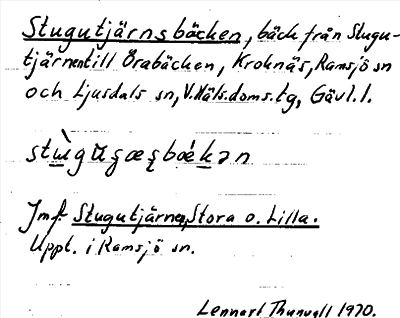 Stugutjärnsbäcken, bäck från Stugu-
tjärnen till Örabäcken, Kroknäs, Ramsjö sn
och Ljusdals sn, V. Häls. doms. tg, Gävl. l.
Jmf. Stugutjärnen, Stora o. Lilla.
Uppt. i Ramsjö sn.
Lennart Thunvall 1970.